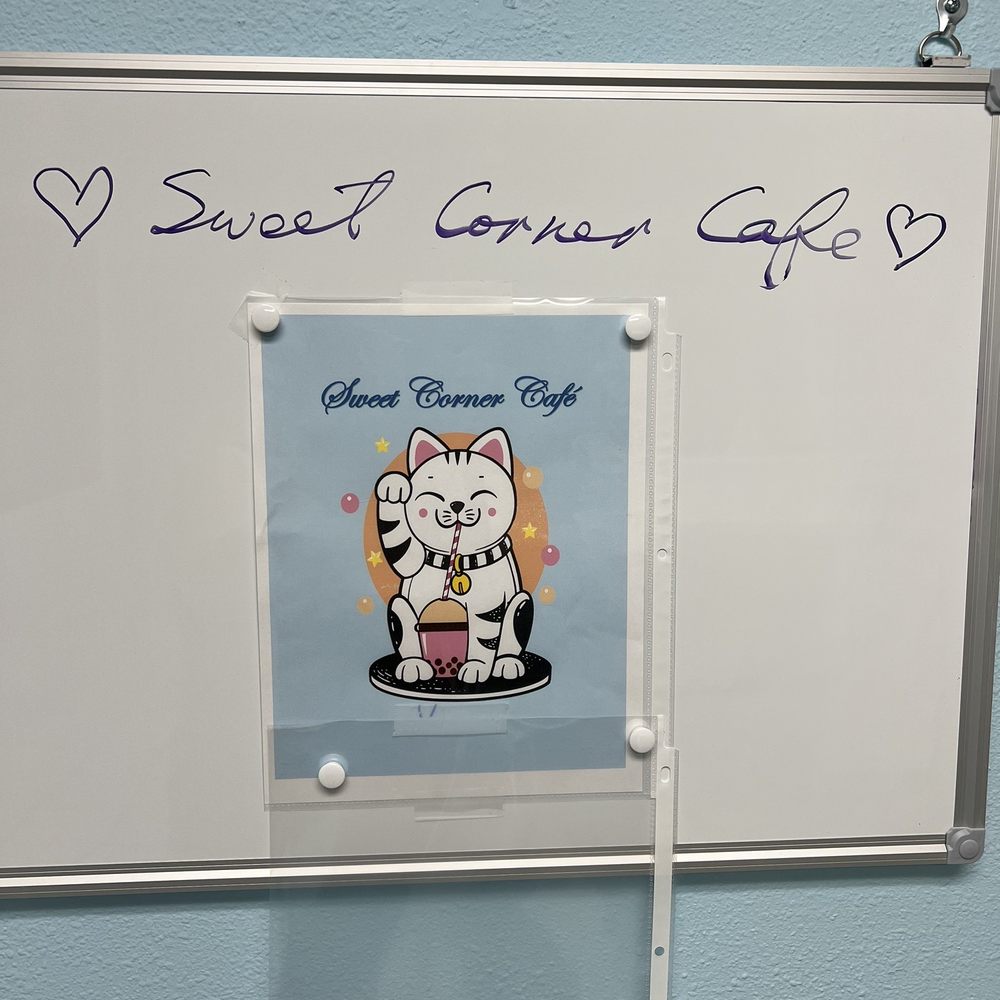 ♡ Sweet Corner Cafe ♡
Sweet Corner Café